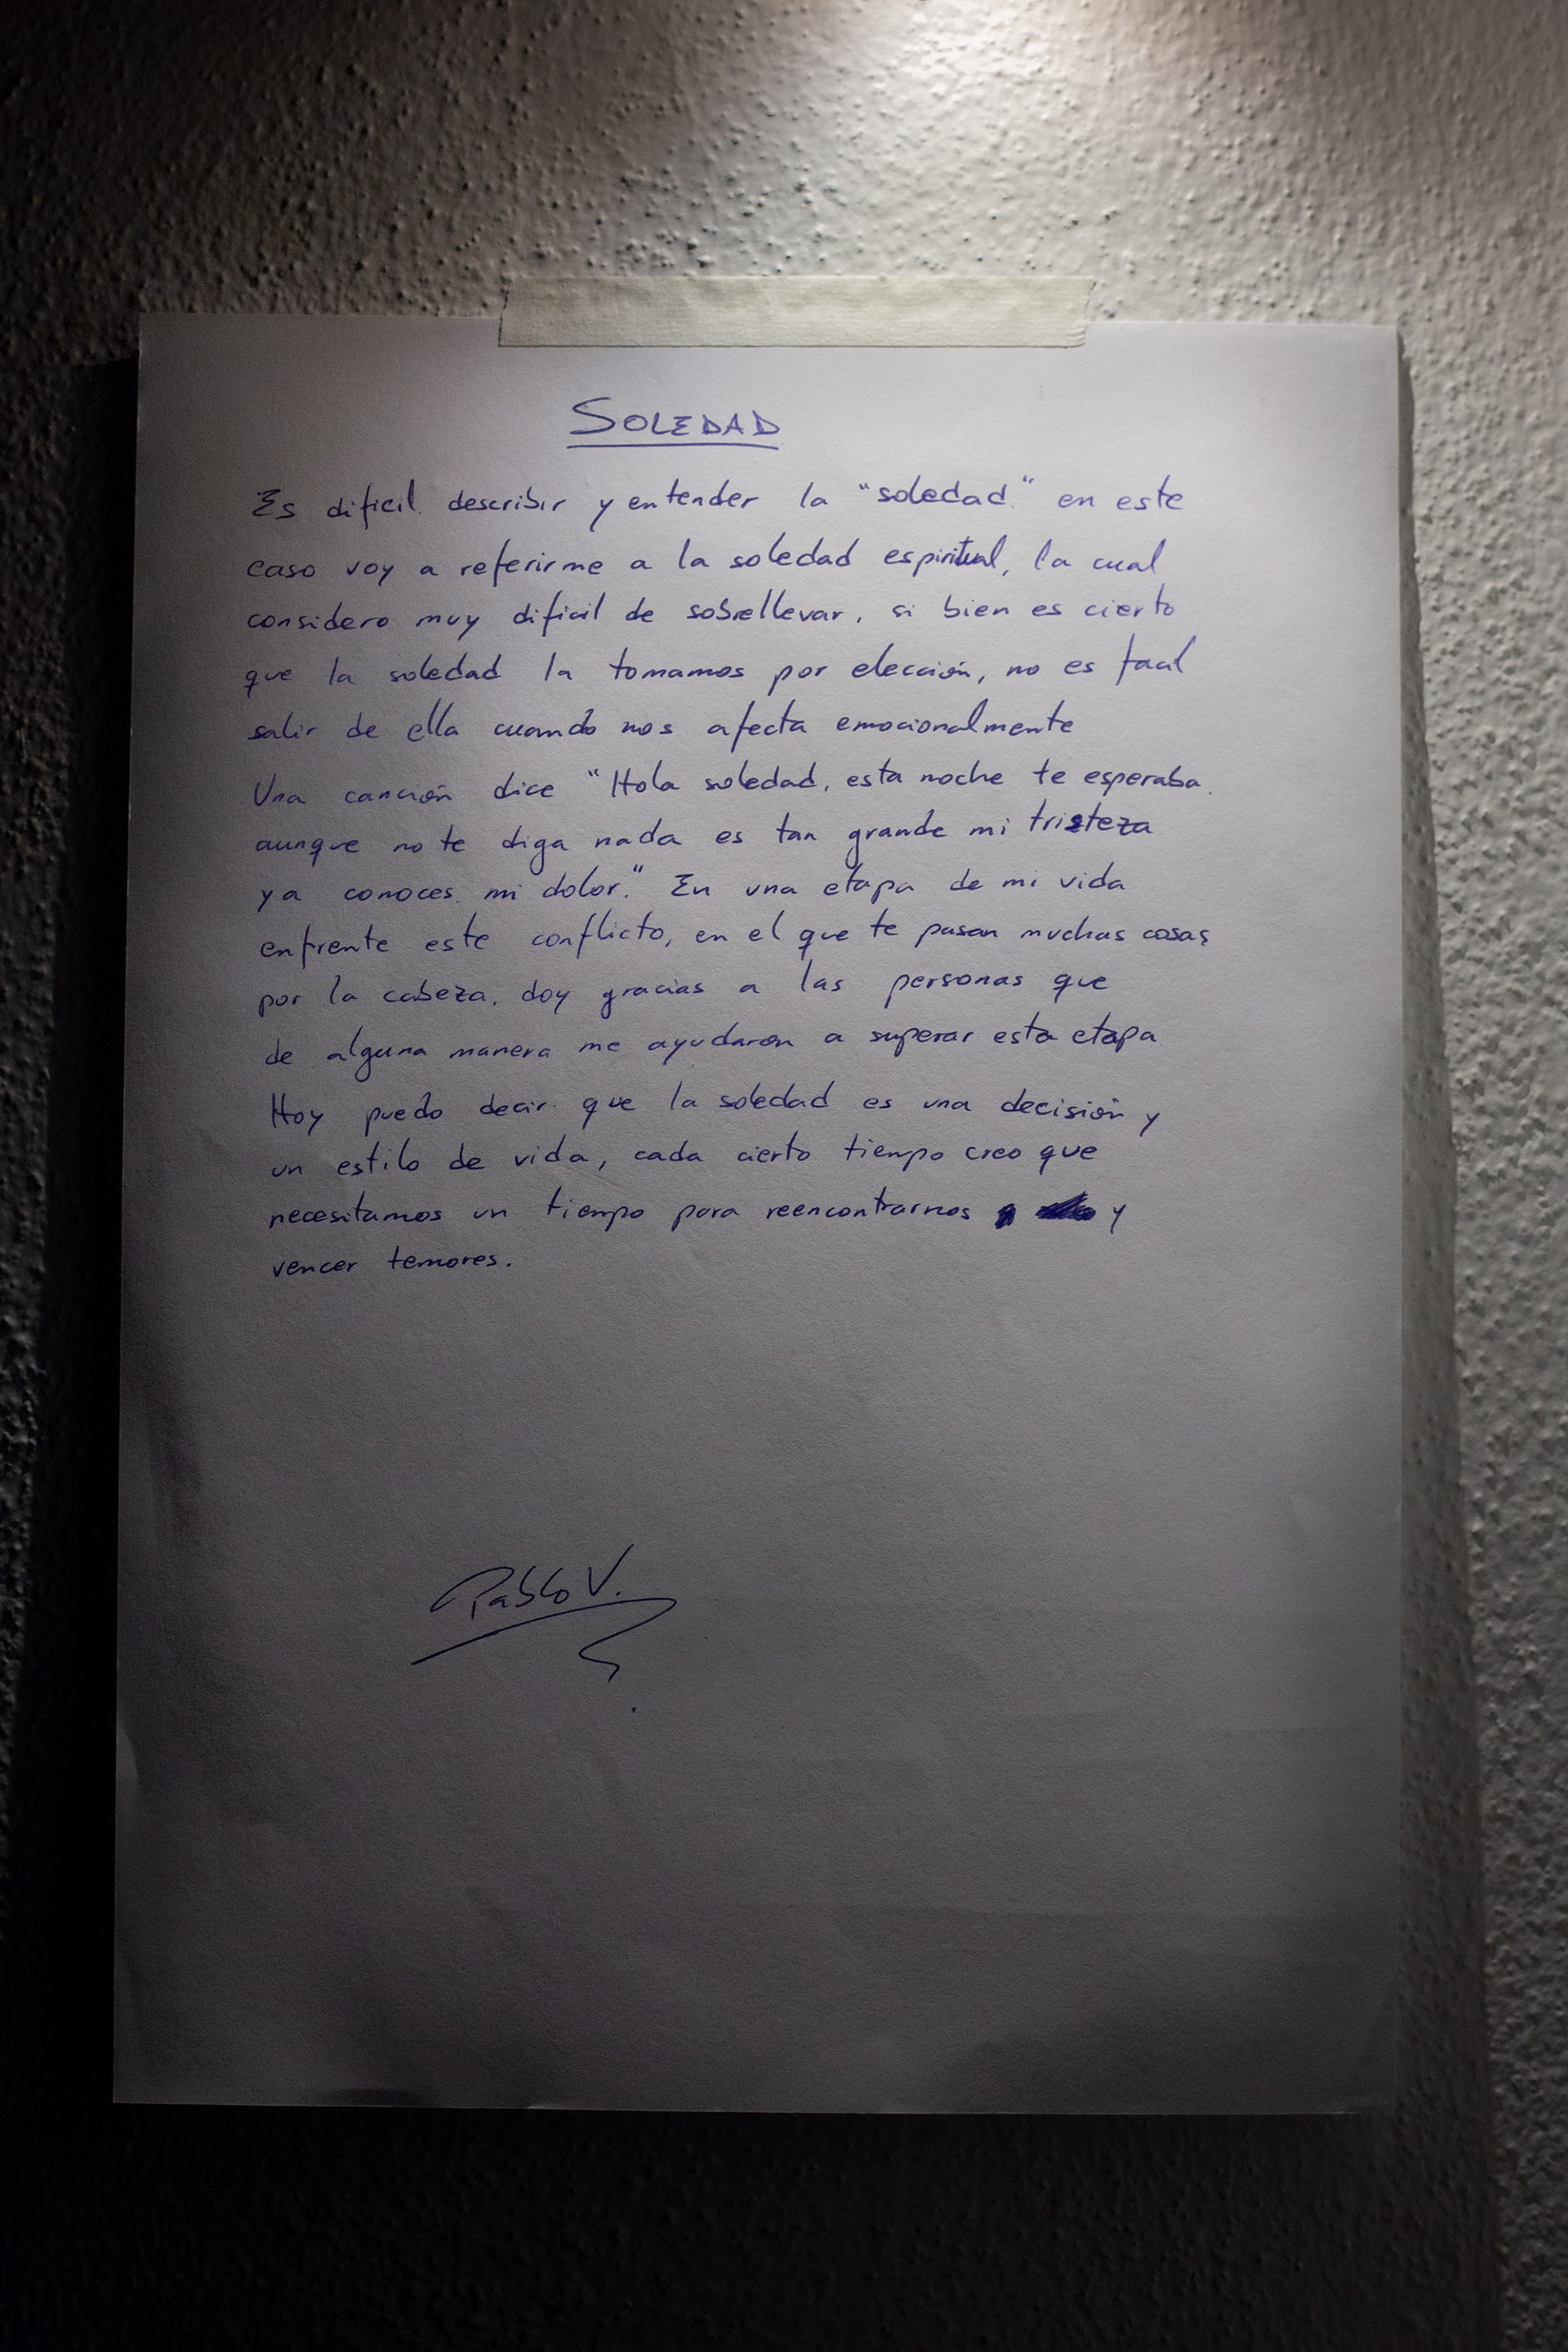 SOLEDAD
Es dificil describir y entender la "soledad" en este
caso voy a referirme a la soledad espiritual, la cual
considero muy dificil de sobrellevar, si bien es cierto
que la soledad la tomamos por elección, no es facil
salir de ella cuando nos afecta emocionalmente
Una canción dice "Hola soledad, esta noche te esperaba,
aunque no te diga nada es tan grande mi tristeza
ya conoces mi dolor." En una etapa de mi vida
enfrente este conflicto, en el que te pasan muchas cosas
por la cabeza, doy gracias a las personas que
de alguna manera me ayudaron a superar esta etapa
Hoy puedo decir que la soledad es una decisión y
un estilo de vida, cada cierto tiempo creo que
necesitamos un tiempo para reencontrarnos y
vencer temores.
Pablo V.